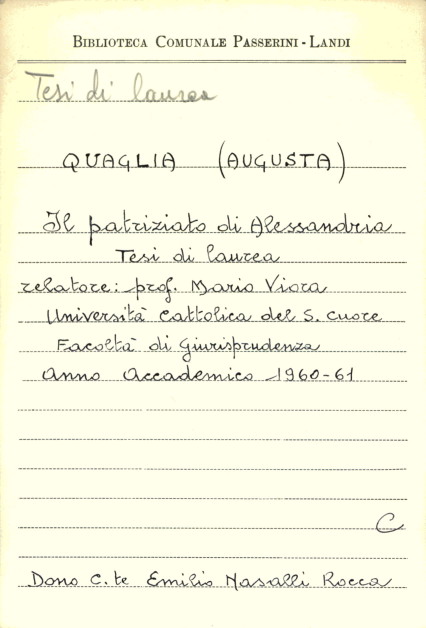 BIBLIOTECA COMUNALE PASSERINI - LANDI
Tesi di laurea
QUAGLIA (AUGUSTA)
Il patriziato di Alessandria
Tesi di laurea
relatore: prof. Mario Viora
Università Cattolica del S. Cuore
Facoltà di Giurisprudenza
Anno Accademico 1960-61
C
Dono C.te Emilio Nasalli Rocca